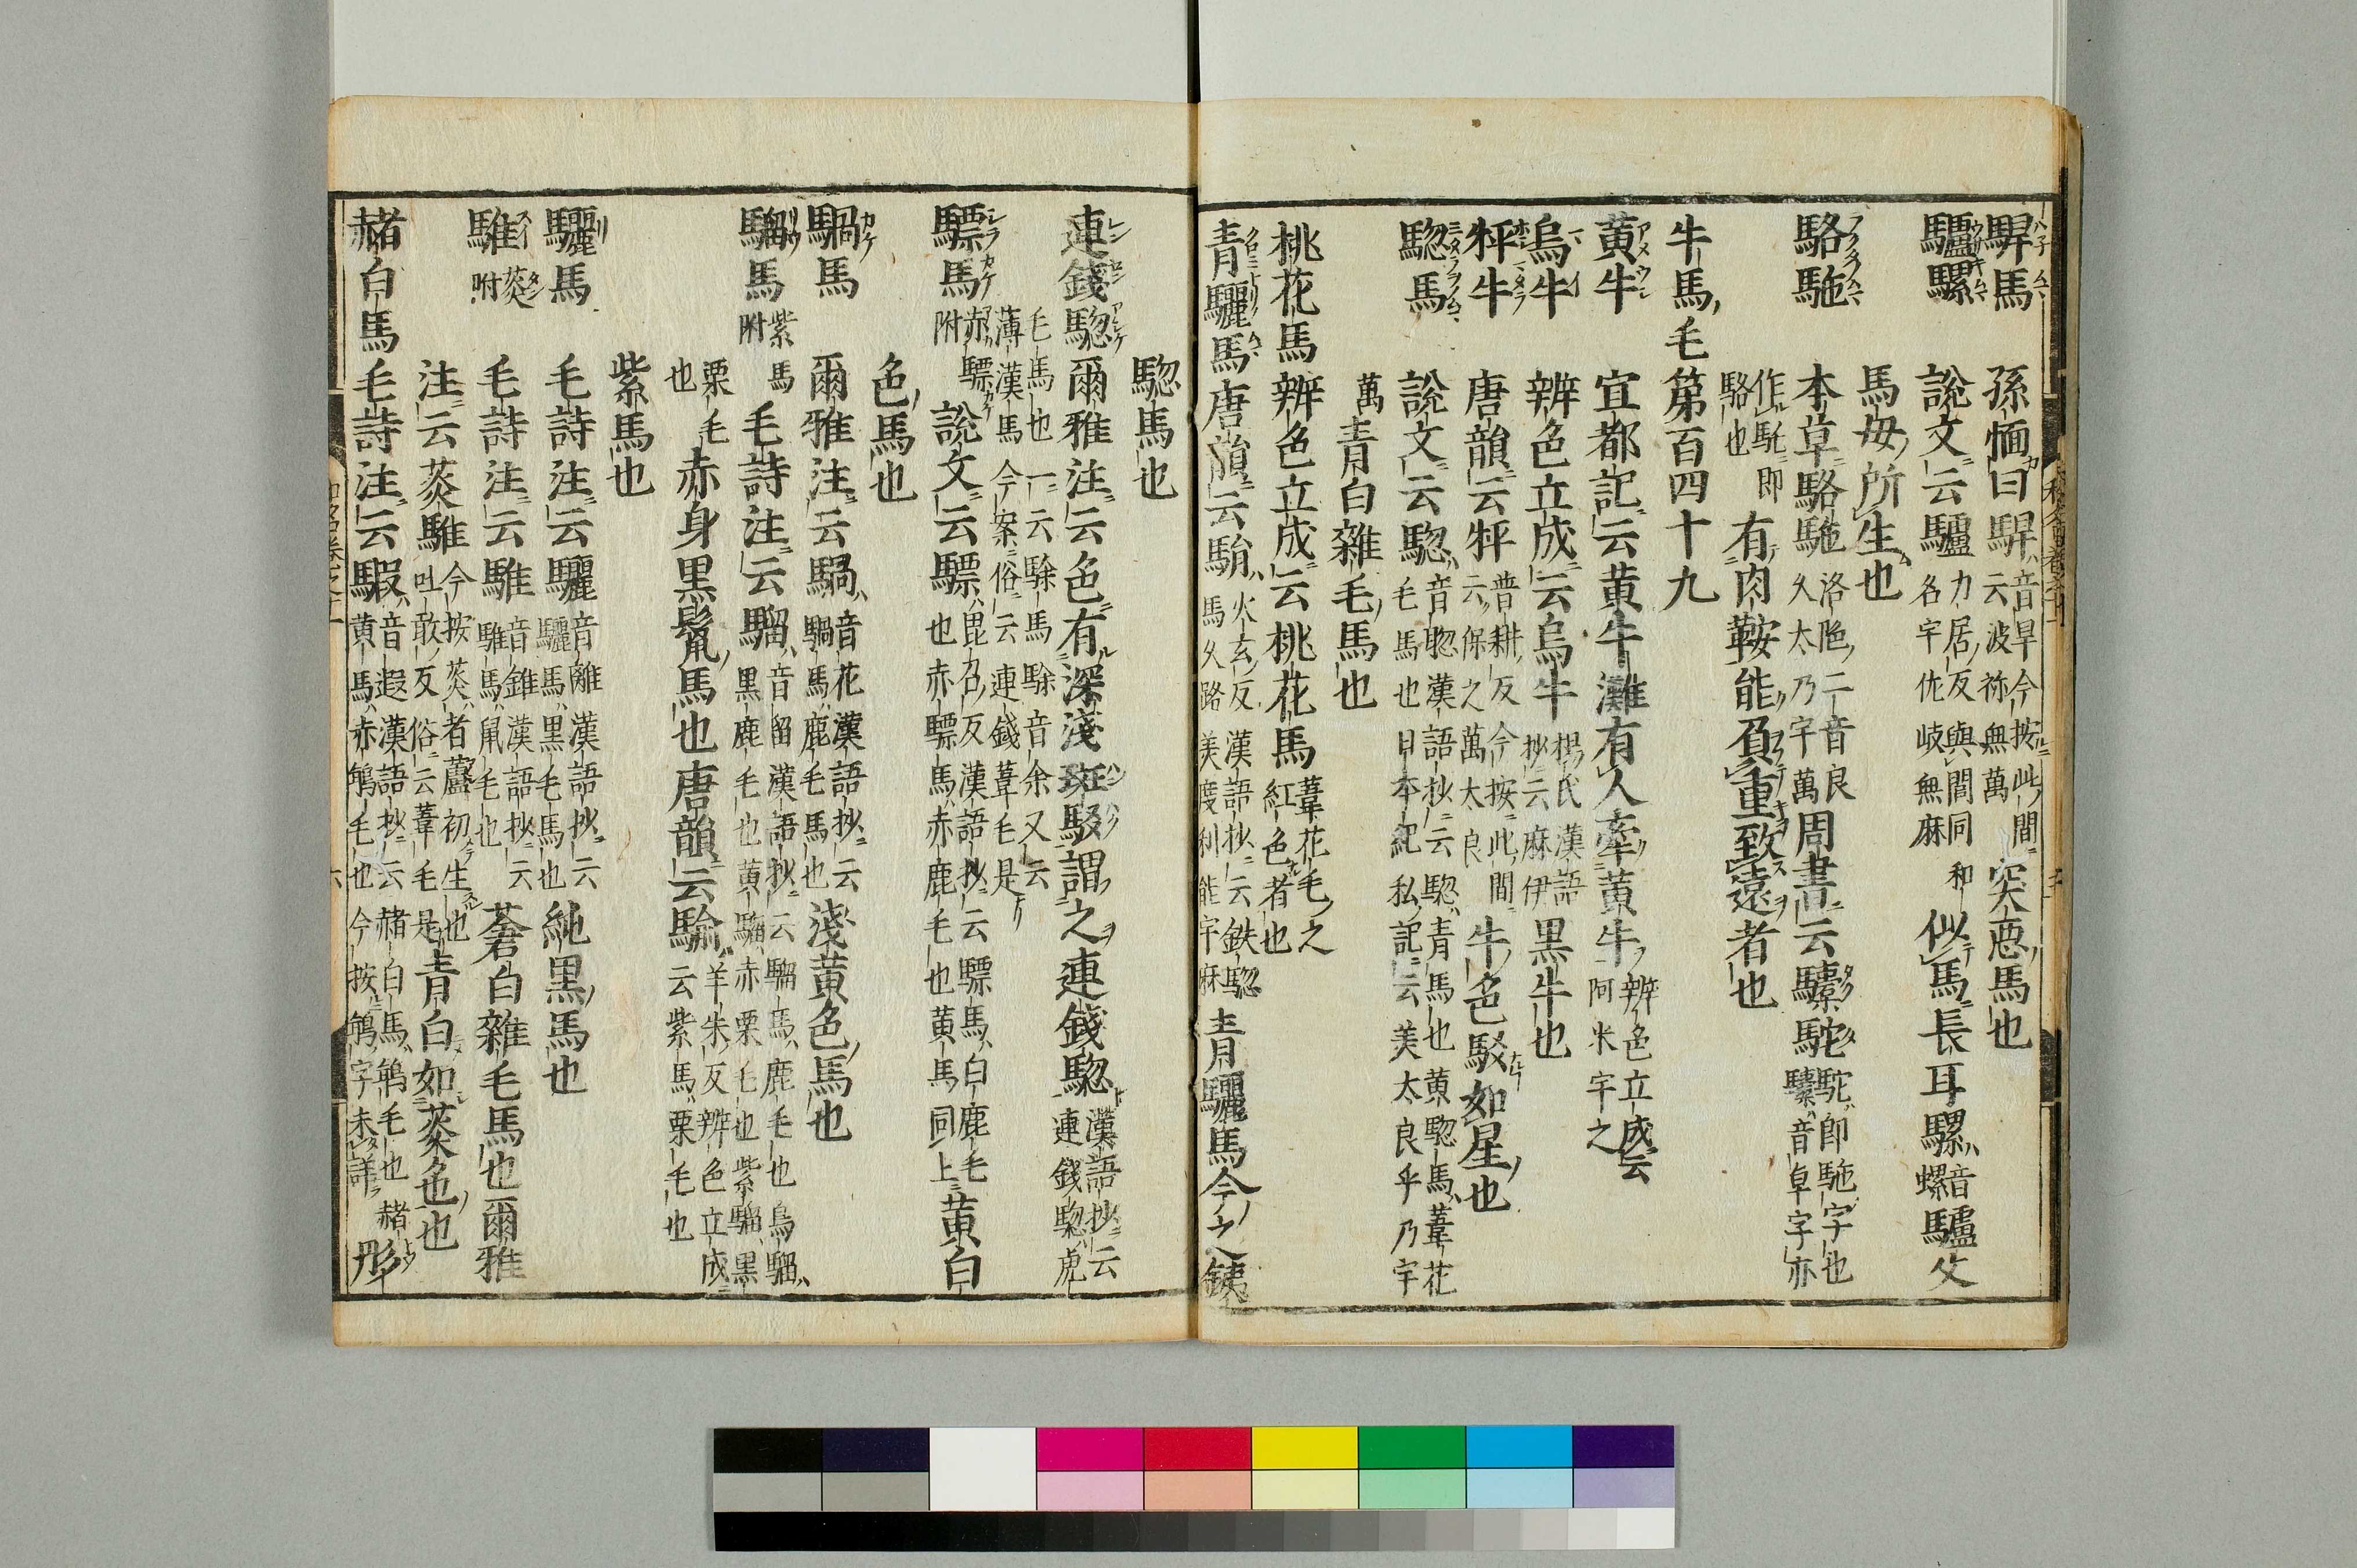 駻馬 孫愐曰駻音旱今按此間云波祢無萬突惡馬也
驢騾 說文云驢力居反與閭同和名宇佐岐無麻似馬長耳騾音螺驢父
馬母所生也
駱駞 本草駱駞洛陁二音良久太乃宇萬周書云驝駝駝即駞字也驝音卓字亦
作馲即駱也有肉鞍能負重致遠者也
牛馬毛第百四十九
黄牛 宜都記云黄牛灘有人牽黄牛辨色立成云阿米宇之
烏牛 辨色立成云烏牛楊氏漢語抄云麻伊黒牛也
牪牛 唐韻云牪普耕反今按此間云保之萬太良牛色駁如星也
騘馬 說文云騘音聦漢語抄云騘青馬也黄騘馬葦花毛馬也日本紀私記云美太良乎乃宇
萬青白雜毛馬也
桃花馬 辨色立成云桃花馬葦花毛之紅色者也
青驪馬 唐韻云駽火玄反漢語抄云鉄騘馬久路美度利能宇麻青驪馬今之鐵
騘馬也
連錢騘 爾雅注云色有深淺斑駁謂之連錢騘漢語抄云連錢騘虎
毛馬也一云䮄馬䮄音余又云薄漢馬今案俗云連錢葦毛是
驃馬 赤驃附 說文云驃毘召反漢語抄云驃馬白鹿毛也赤驃馬赤鹿毛也黄馬同上黄白
色馬也
騧馬 爾雅注云騧音花漢語抄云騧馬鹿毛馬也淺黄色馬也
騮馬 紫馬附 毛詩注云騮音留漢語抄云騮馬鹿毛也烏騮黒鹿毛也黄騮赤栗毛也紫騮黒
栗毛也赤身黒鬣馬也唐韻云騟羊朱反辨色立成云紫馬栗毛也
紫馬也
驪馬 毛詩注云驪音離漢語抄云驪馬黒毛馬也純黒馬也
騅 菼附 毛詩注云騅音錐漢語抄云騅馬鼠毛也蒼白雜毛馬也爾雅
注云菼騅今按菼者蘆初生也吐敢反俗云葦毛是青白如菼色也
赭白馬 毛詩注云騢音遐漢語抄云赭白馬鴾毛也黄馬赤鴾毛也今按鴾字未詳赭彤